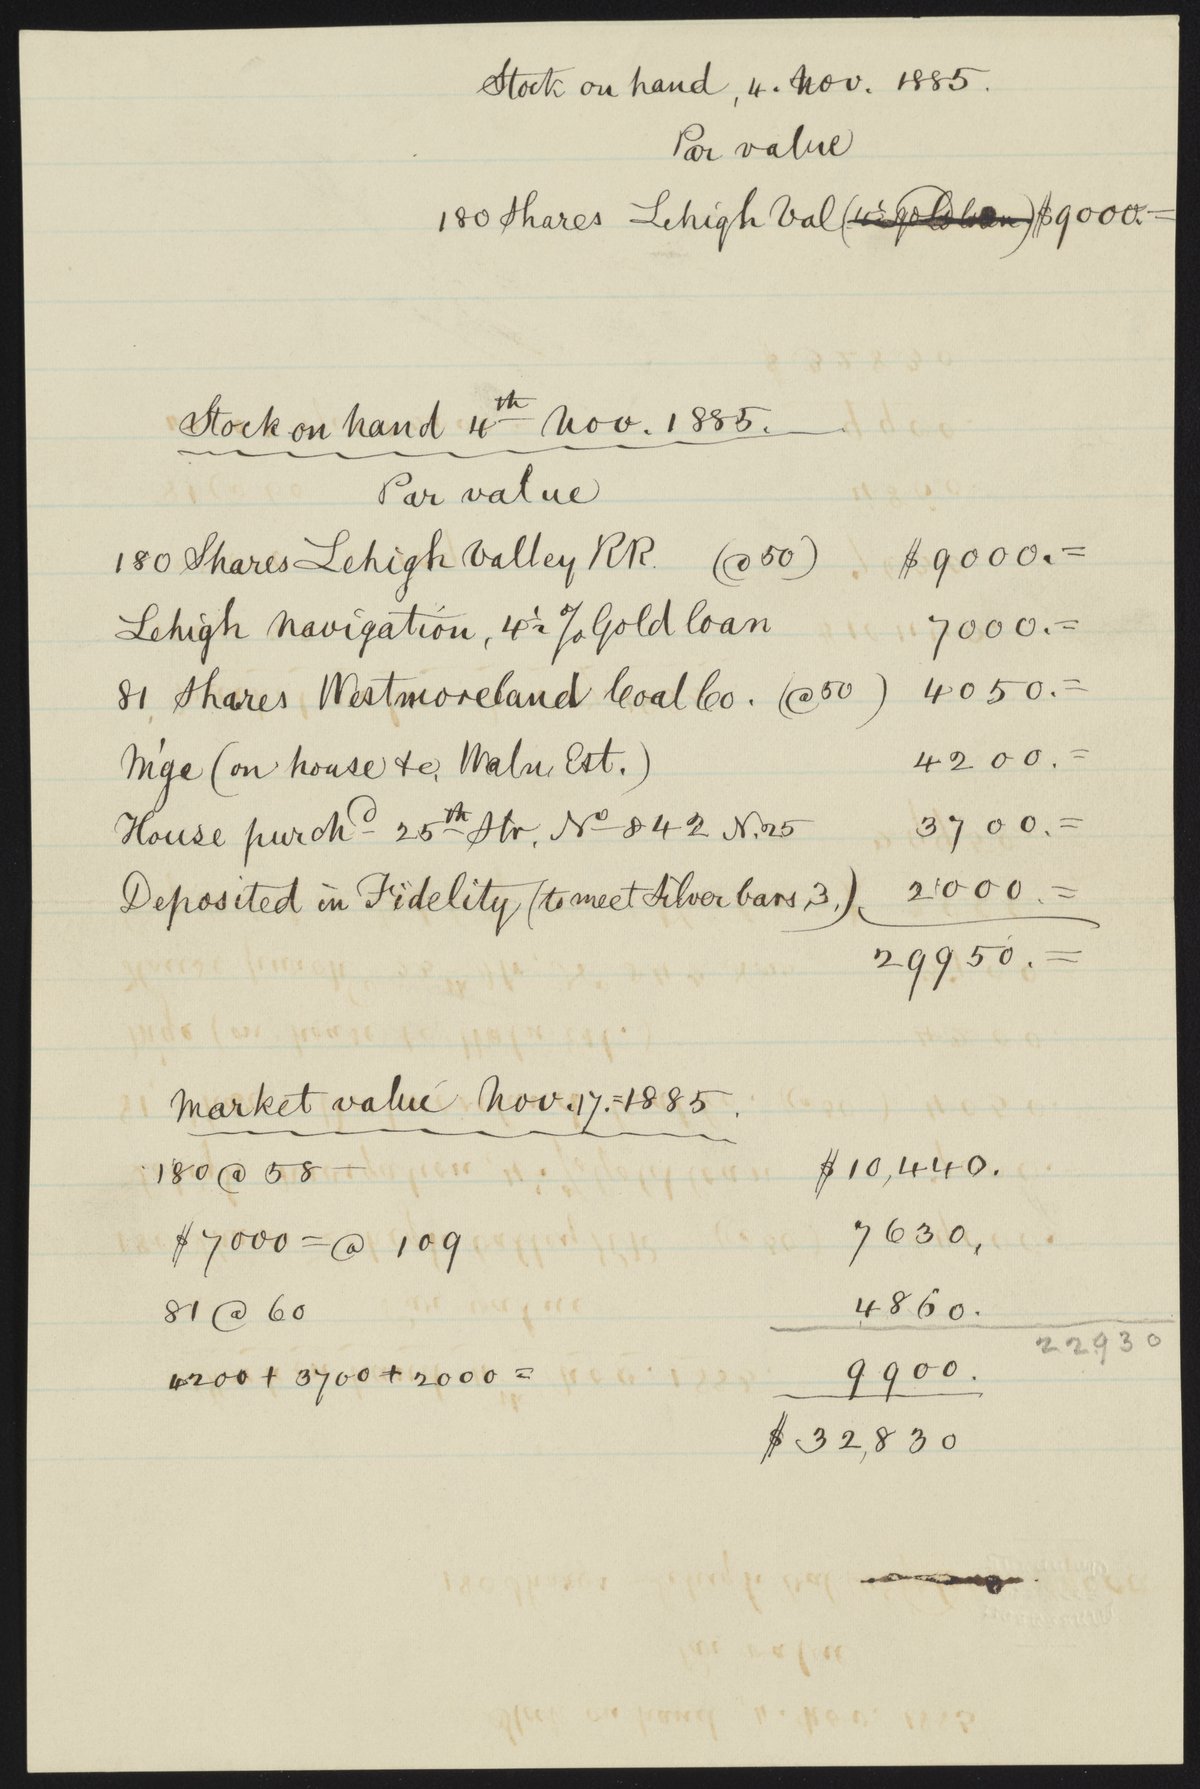 Stock on hand, 4. Nov. 1885.
Par value
180 Shares Lehigh Val (4½ gold loan) $9000.=
Stock on hand 4th Nov. 1885.
Par value
180 Shares Lehigh Valley RR. (@50) $9000.=
Lehigh Navigation, 4½ % Gold loan 7000.=
81 Shares Westmoreland Coal Co. (@50) 4050.=
M'ge (on house &c, Waln. Est.) 4200.=
House purchd 25th Str. No 842 N. 25 3700.=
Deposited in Fidelity (to meet Silver bars, 3,) 2000.=
29950.=
Market value Nov. 17.=1885.
180 @ 58 — $10,440.
$7000= @ 109 7630,
81 @ 60 4860.
22930
4200 + 3700 + 2000 = 9900.
$32,830